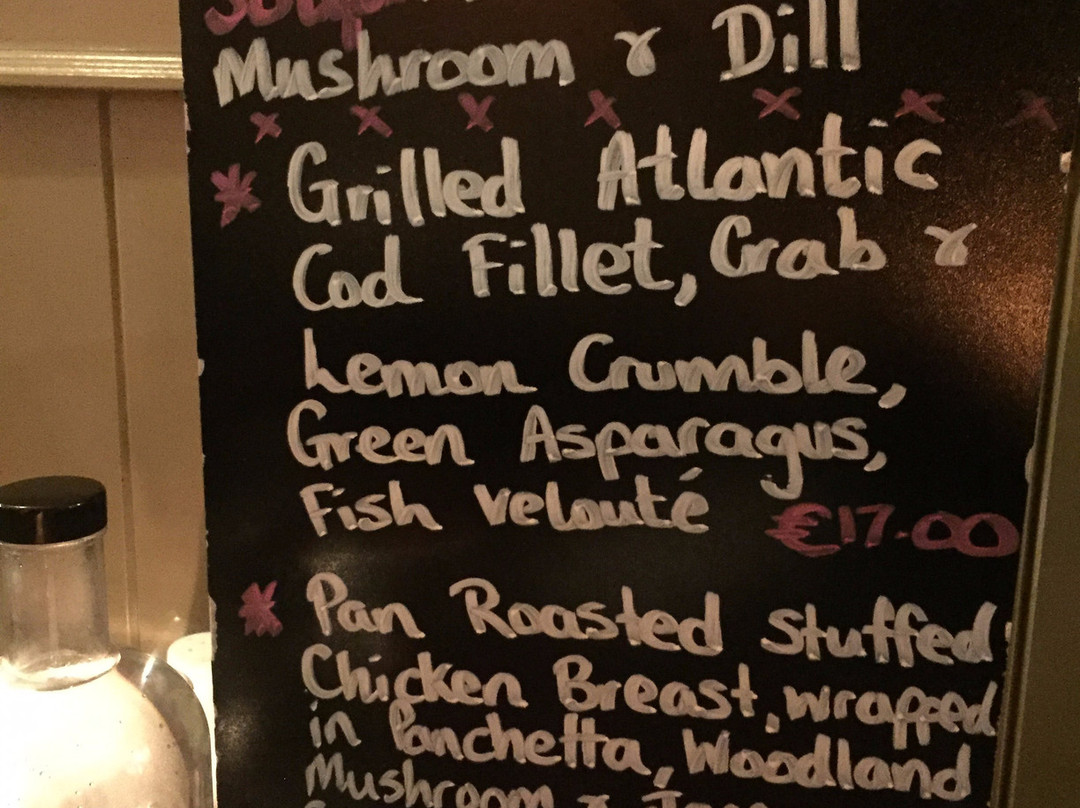 Soup
Mushroom & Dill
Grilled Atlantic
Cod Fillet, Crab &
Lemon Crumble,
Green Asparagus,
Fish Velouté €17.00
Pan Roasted Stuffed
Chicken Breast, wrapped
in Panchetta, Woodland
Mushroom &